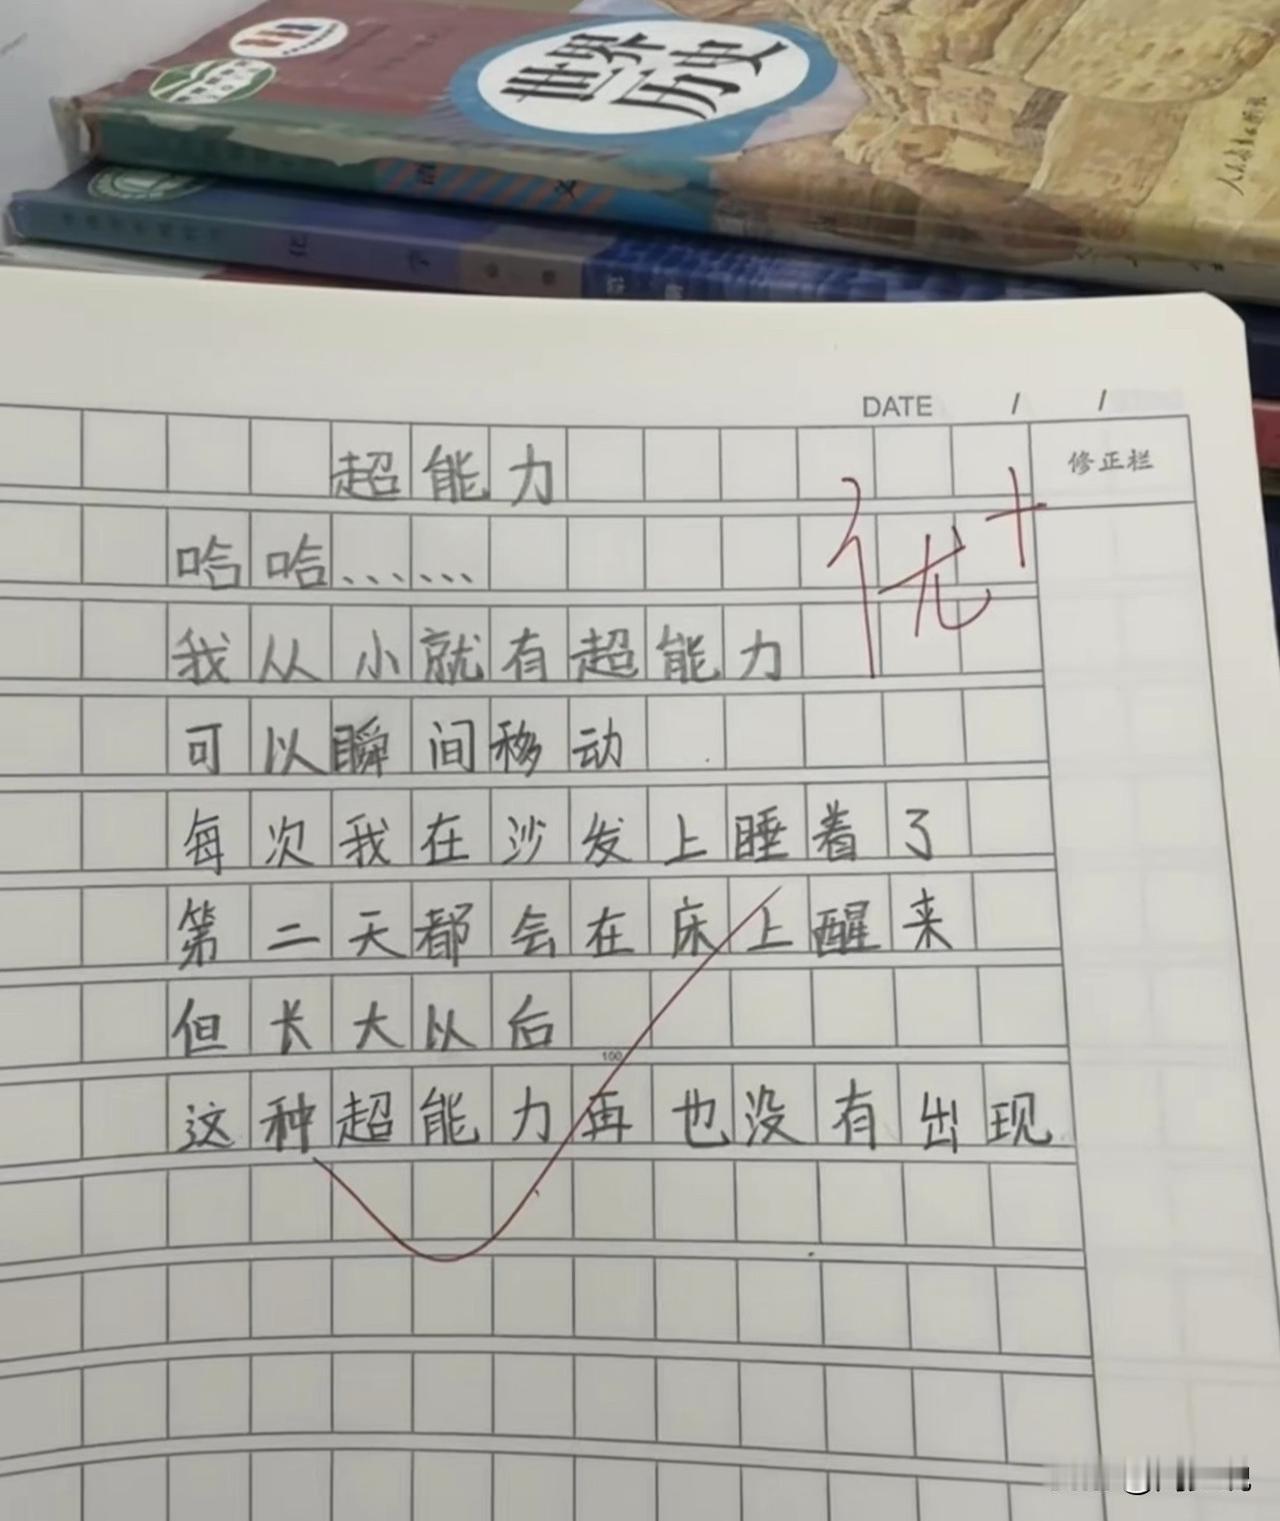 世界
历史
人民教育出版社
语文
化学
DATE / /
修正栏
超能力
优+
哈哈……
我从小就有超能力
可以瞬间移动
每次我在沙发上睡着了
第二天都会在床上醒来
但长大以后
100
这种超能力再也没有出现